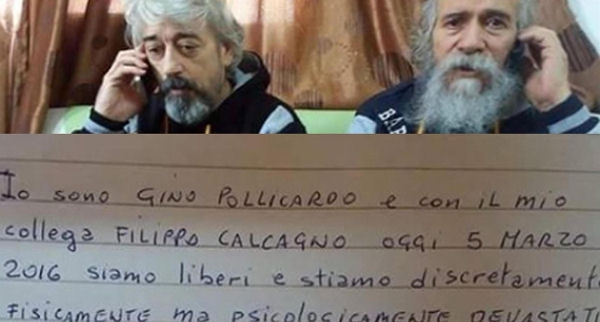 BAR
Io sono GINO POLLICARDO e con il mio
collega FILIPPO CALCAGNO oggi 5 MARZO
2016 siamo liberi e stiamo discretament
FISICAMENTE ma psicologicamente DEVASTATI